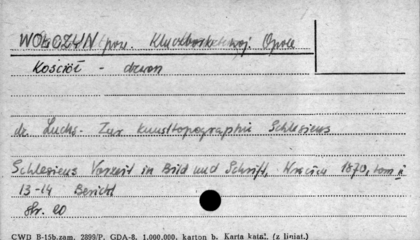 WOŁCZYN pow. Kluczbork woj. Opole
Kościół - dzwon
dr. Luchs - Zur Kunsttopographie Schlesiens
Schlesiens Vorzeit in Bild und Schrift, 1870, tom II
13-14 Bericht
Str. 20
CWD B-15b.zam. 2899/P. GDA-8. 1.000.000. karton b. Karta katal. (z liniat.)